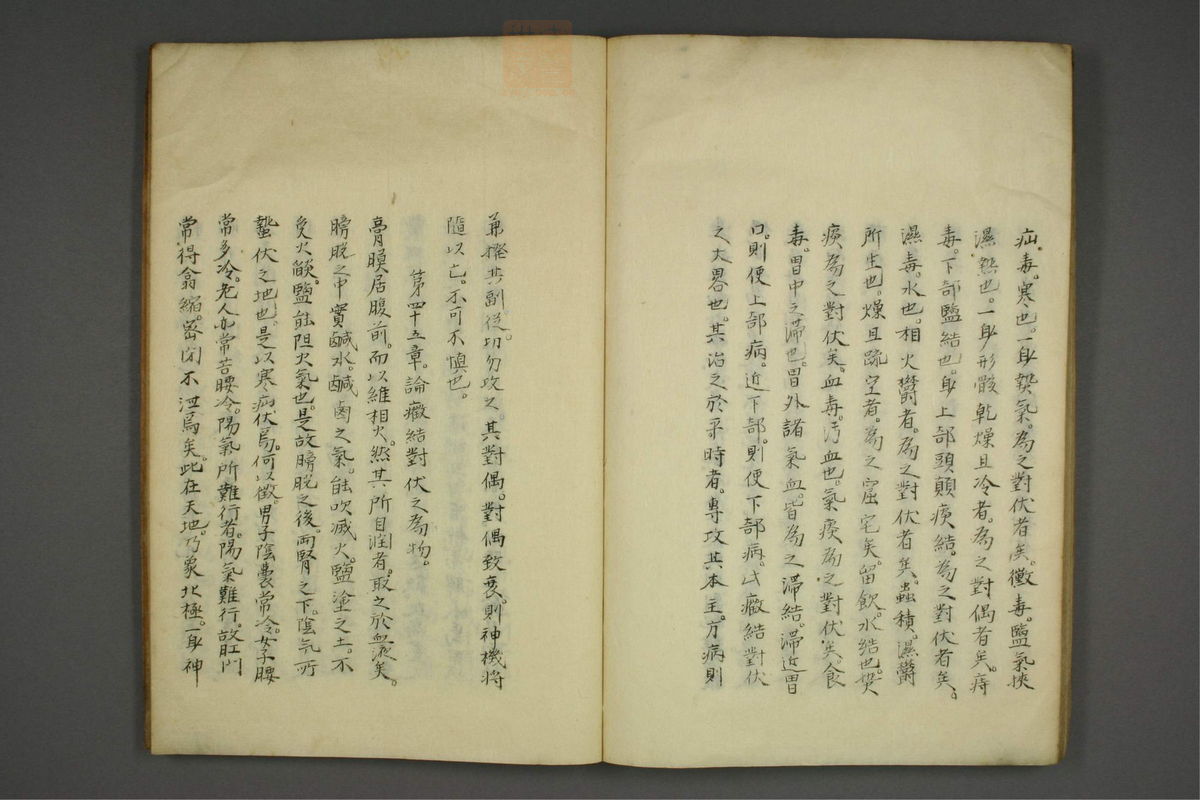 疝毒。寒也。一身熱氣。為之對伏者矣。黴毒。鹽氣挾
濕熱也。一身形骸乾燥且冷者。為之對偶者矣。痔
毒。下部鹽結也。身上部頭顛痰結。為之對伏者矣。
濕毒。水也。相火鬱者。為之對伏者矣。蟲積。濕鬱
所生也。燥且疏空者。為之窟宅矣。留飲。水結也。
痰為之對伏矣。血毒。汚血也。氣痰為之對伏矣。食
毒。胃中之滯也。胃外諸氣血。皆為之滯結。滯近胃
口。則便上部病。近下部。則便下部病。此癥結對伏
之大畧也。其治之於平時者。專攻其本主。方病則
兼撥其副從。切勿攻之。其對偶。對偶致衰。則神機將
隨以亡。不可不慎也。
第四十五章。論癥結對伏之為物。
膏膜居腹前。而以維相火。然其所自潤者。取之於血液矣。
膀胱之中實鹹水。鹹鹵之氣。能吹滅火。鹽塗之土。不
受火燄。鹽能阻火氣也。是故膀胱之後。兩腎之下。陰氣所
蟄伏之地也。是以寒病伏焉。何以徵。男子陰囊常冷。女子腰
常多冷。老人亦常苦腰冷。陽氣所難行者。陽氣難行。故肛門
常得翕縮。密閉不泄焉矣。此在天地。乃象北極。一身神